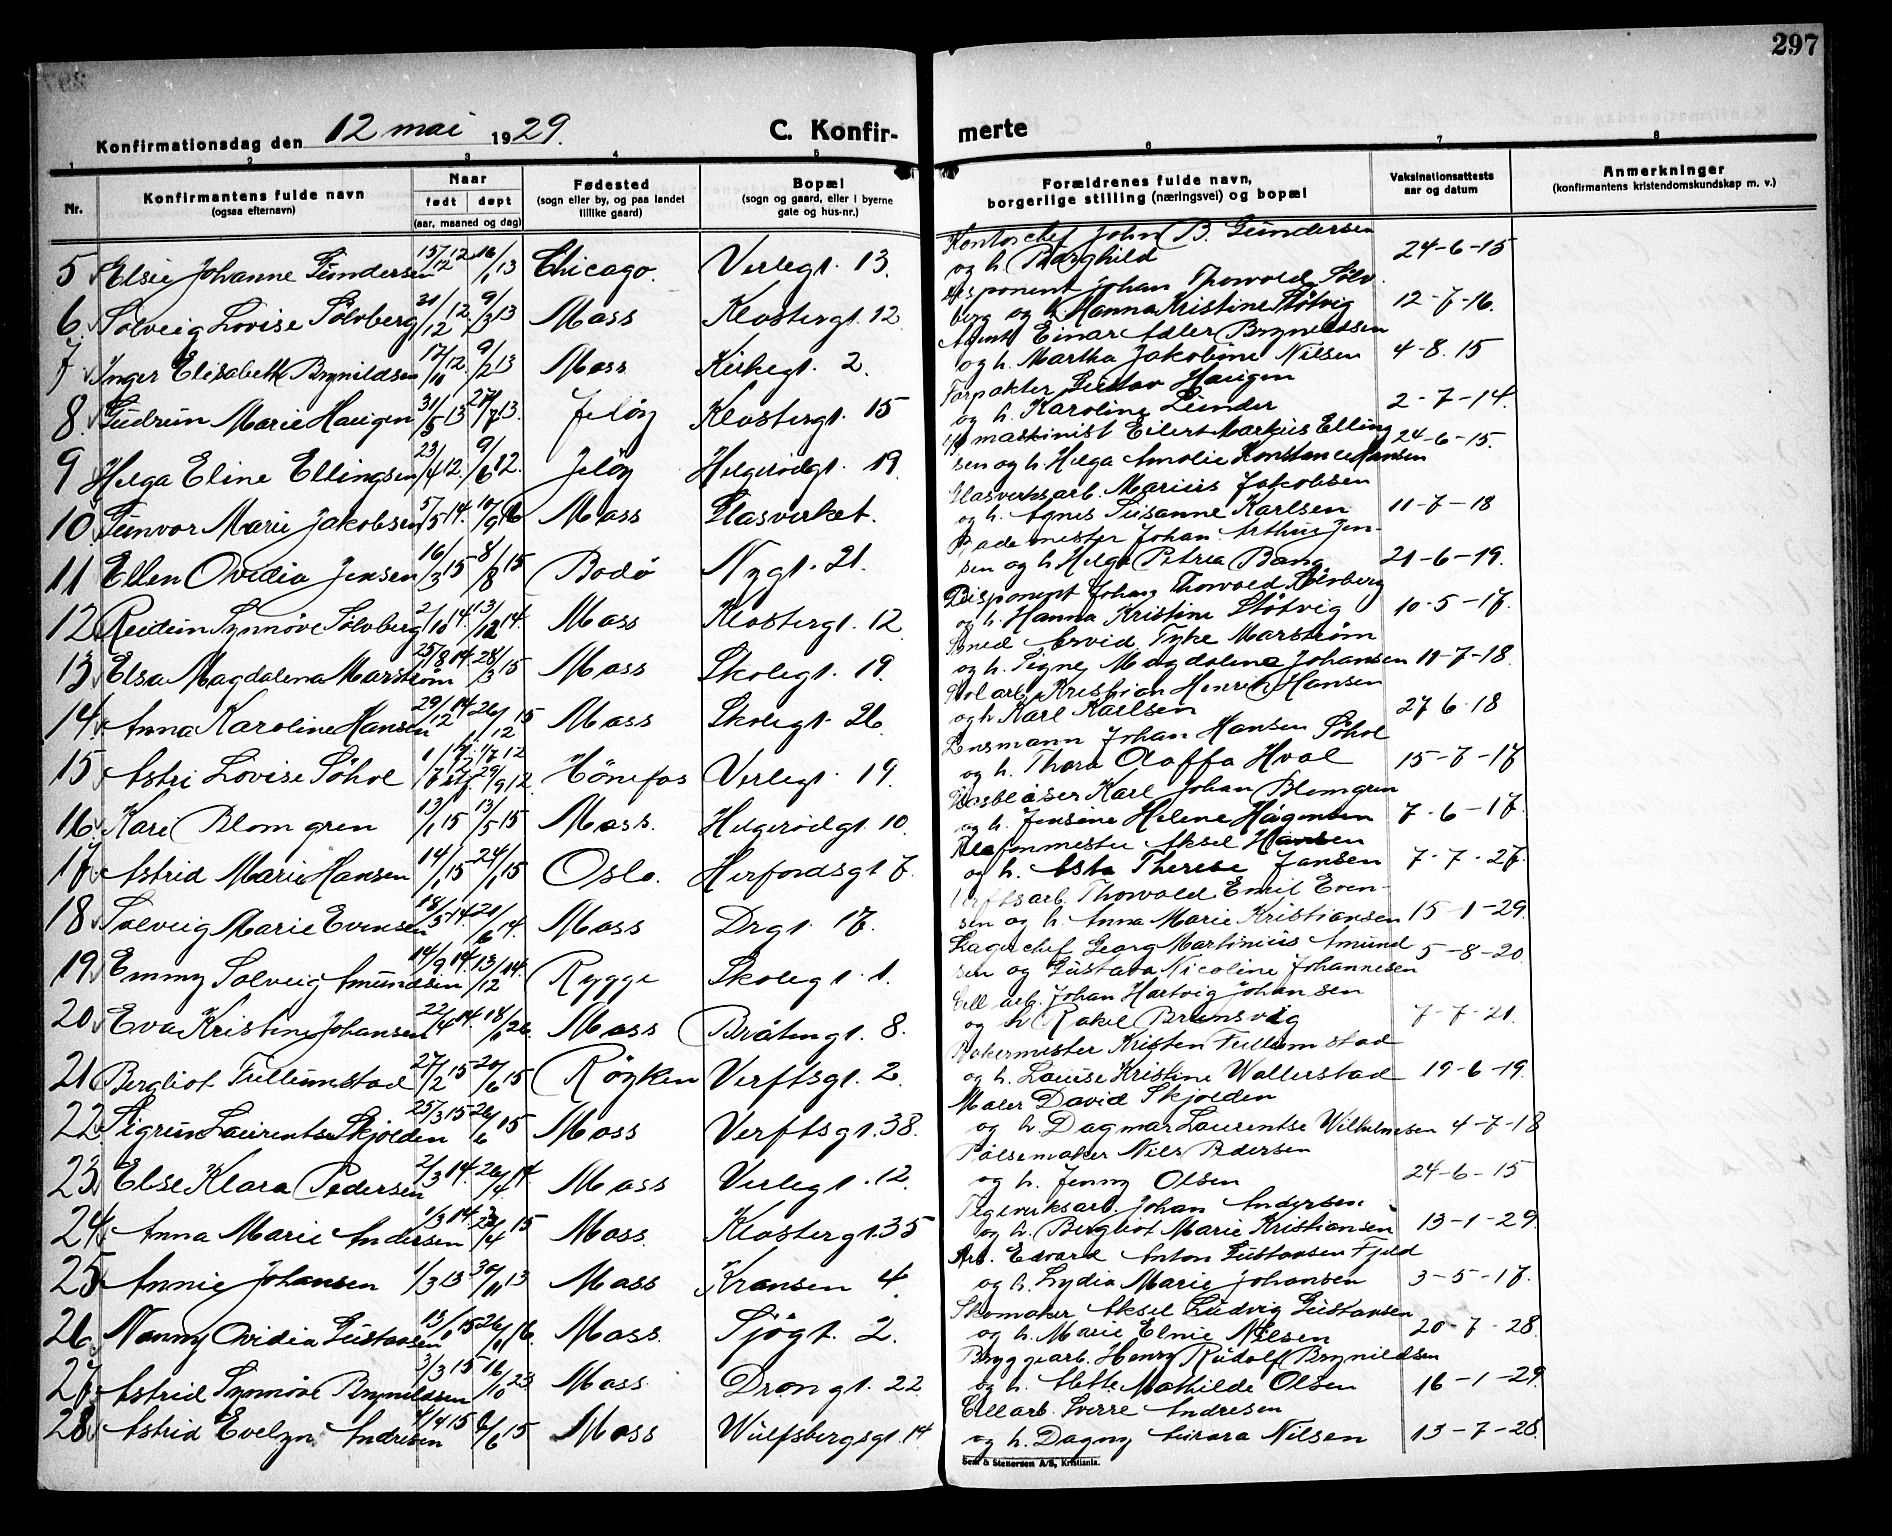 297
Konfirmationsdag den 12 mai 1929. C. Konfir- merte
1 2 3 4 5 6 7 8
Nr. Konfirmantens fulde navn (ogsaa efternavn) Naar født døpt (aar, maaned og dag) Fødested (sogn eller by, og paa landet tillike gaard) Bopæl (sogn og gaard, eller i byerne gate og hus-nr.) Forældrenes fulde navn, borgerlige stilling (næringsvei) og bopæl Vaksinationsattests aar og datum Anmerkninger (konfirmantens kristendomskundskap m. v.)
5 Elsie Johanne Gundersen 13/12 12 16/1 13 Chicago. Verlegt. 13. Kontorchef John B. Gundersen og h. Borghild 24-6-15
6. Solveig Lovise Sølvberg 31/12 12. 9/3 13 Moss Klostergt. 12 Disponent Johan Thorvald Sølvberg og h. Hanna Kristine Støtvig 12-7-16.
7 Inger Elisabeth Brynildsen 17/10 12. 9/2 13 Moss Kirkegt. 2. Agent Einar Adler Brynildsen og h. Martha Jakobine Nilsen 4-8. 15
8. Gudrun Marie Haugen 31/5 13 27/7 13. Jeløy Klostergt. 15 Forpakter Gustav Haugen og h. Karoline Lunder 2-7-14.
9 Helga Eline Ellingsen 23/4 12. 9/6 12. Jeløy Helgerødgt. 19. maskinist Eilert Markus Ellingsen og h. Helga Amalie Konstance Hansen 24-6-15.
10. Gunvor Marie Jakobsen 5/5 14. 10/9 16 Moss Glasverket. Glasverksarb. Marius Jakobsen og h. Agnes Susanne Karlsen 11-7-18
11 Ellen Ovidia Jensen 16/3 15 8/8 15 Bodø Nygt. 21. Bademester Johan Arthur Jensen og h. Helga Petrea Bang 21-6-19.
12 Reidun Synnøve Sølvberg 2/10 14. 13/12 14. Moss Klostergt. 12. Disponent Johan Thorvald Sølvberg og h. Hanna Kristine Støtvig 10-5-17.
13 Elsa Magdalena Marstrøm 25/8 14. 28/3 15 Moss Skolegt. 19. Smed Arvid Tyke Marstrøm og h. Signe Magdalene Johansen 11-7-18.
14. Anna Karoline Hansen 29/12 14 26/12 15 Moss Skolegt. 26 arb. Kristian Henrik Hansen og h. Karl Karlsen 27 6-18
15 Astri Lovise Søhol 29/9 12. Hønefos Verlegt. 19. Lensmann Johan Hansen Søhol og h. Thora Olaffa Hval 15-7-17
16. Kari Blomgren 13/1 15 13/5 15 Moss. Helgerødgt. 10. Glasblåser Karl Johan Blomgren og h. Jensine Helene Hågensen 7-6-17.
17. Astrid Marie Hansen 14/1 15 24/1 15 Oslo. Herfordsgt 7. Aksel Hansen og h. Asta Therese Jansen 7-7-27.
18 Solveig Marie Evensen 18/3 14. 21/6 14. Moss Drgt. 17. Verftsarb. Thorvald Emil Evensen og h. Anna Marie Kristiansen 15-1-29.
19. Emmy Solveig Amundsen 14/9 14. 13/12 14. Rygge Skolegt. 1. Lagerchef Georg Martinius Amundsen og Gustava Nicoline Johannesen 5-8-20.
20 Eva Kristine Johansen 22/4 14. Moss Bråtengt. 8. Cell. arb. Johan Hartvig Johansen og h. Rakel Brunsvig 7-7-21.
21 Bergliot Fullumstad 27/2 15 20/6 15 Røyken Verftsgt. 2. Bakermester Kristen Fullumstad og h. Louise Kristine Wallerstad 19-6-19.
22 Sigrun Laurentse Skjolden 25/3 15 26/6 15 Moss Verftsgt. 38. Maler David Skjolden og h. Dagmar Laurentse Wilhelmsen 4-7-18
23 Else Klara Pedersen 2/3 14. 26/4 14 Moss Verlegt. 12. Pølsemaker Nils Pedersen og h. Jenny Olsen 24-6-15
24 Anna Marie Andersen 1/3 14. 15 Moss. Klostergt. 35 Teglverksarb. Johan Andersen og h. Bergliot Marie Kristiansen 13-1-29.
25 Annie Johansen 1/3 13 30/11 13 Moss Kransen 4. Arb. Edvard Anton Gustavsen Fjeld og h. Lydia Marie Johansen 3-5-17.
26 Nanny Ovidia Gustavsen 15 26/1 16. Moss. Sjøgt. 2. Skomaker Aksel Ludvig Gustavsen og h. Marie Elnie Nilsen 20-7-28.
27 Astrid Synnøve Brynildsen 3/3 15 16/10 23 Moss Drongt. 22 Bryggearb. Henry Rudolf Brynildsen og h. Mette Mathilde Olsen 16-1-29.
28 Astrid Evelyn Andresen 4/4 15 6/6 15 Moss Wulfsbergsgt. 14 Cellarb. Sverre Andresen og h. Dagny Aurora Nilsen 13-7-28.
Sem & Stenersen A/S, Kristiania.